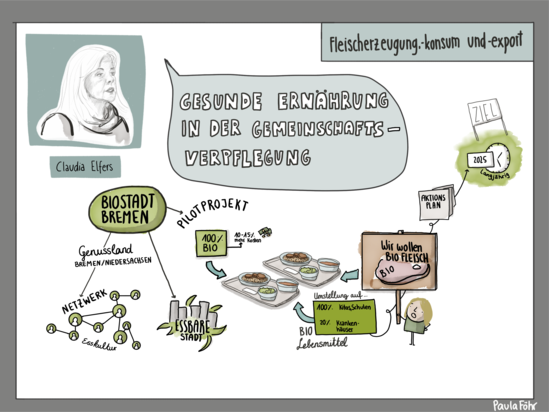 Fleischerzeugung,-konsum und-export
GESUNDE ERNÄHRUNG
IN DER GEMEINSCHAFTS-
VERPFLEGUNG
Claudia Elfers
BIOSTADT
BREMEN
PILOTPROJEKT
100%
BIO
10-15%
mehr Kosten
Genussland
BREMEN/NIEDERSACHSEN
NETZWERK
Esskultur
ESSBARE
STADT
Umstellung auf...
100% Kitas,Schulen
20% Kranken-
häuser
BIO
Lebensmittel
Wir wollen
BIO FLEISCH
BIO
AKTIONS
PLAN
ZIEL
2025
Langjährig
Paula Föhr